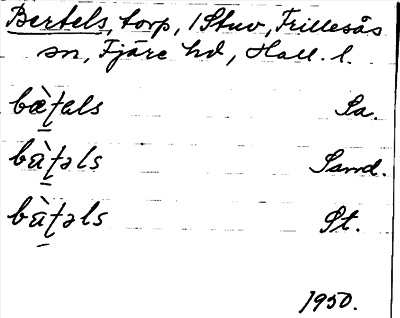 Bertels, torp, 1 Stuv, Frillesås
sn, Fjäre hd, Hall. l.
bæ̀ʈals Sa.
bὰʈəls Sand.
bὰʈəls St.
1950.